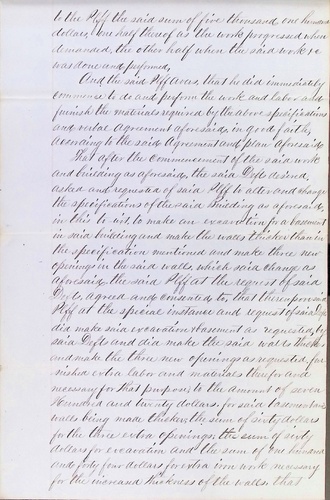 to the Plff the said sum of five thousand one hundred
dollars one half thereof as the work progressed when
demanded, the other half when the said work &c
was done and performed,
And the said Plff avers that he did immediately
commence to do and perform the work and labor and
furnish the materials required by the above specifications
and verbal agreement aforesaid, in good faith,
according to the said Agreement and plan aforesaid.
That after the Commencement of the said work
and building as aforesaid, the said Defts desired,
asked and requested of said Plff to alter and change
the specifications of the said Building as aforesaid
in this to wit, to make an excavation for a basement
in said building and make the walls thicker than in
the specification mentioned and make three new
openings in the said walls, which said change as
aforesaid the said Plff at the request of said
Defts, agreed and consented to, that thereupon said
Plff at the special instance and request of said Defts
did make said excavation & basement as requested by
said Defts and did make the said walls thicker
and make the three new openings as requested, fur-
nished extra labor and materials therefor and
necessary for that purpose, to the amount of seven
Hundred and twenty dollars. for said basement and
walls being made thicker, the sum of sixty dollars
for the three extra openings, the sum of sixty
dollars for excavation and the sum of one hundred
and forty four dollars for extra iron work necessary
for the increased thickness of the walls, that